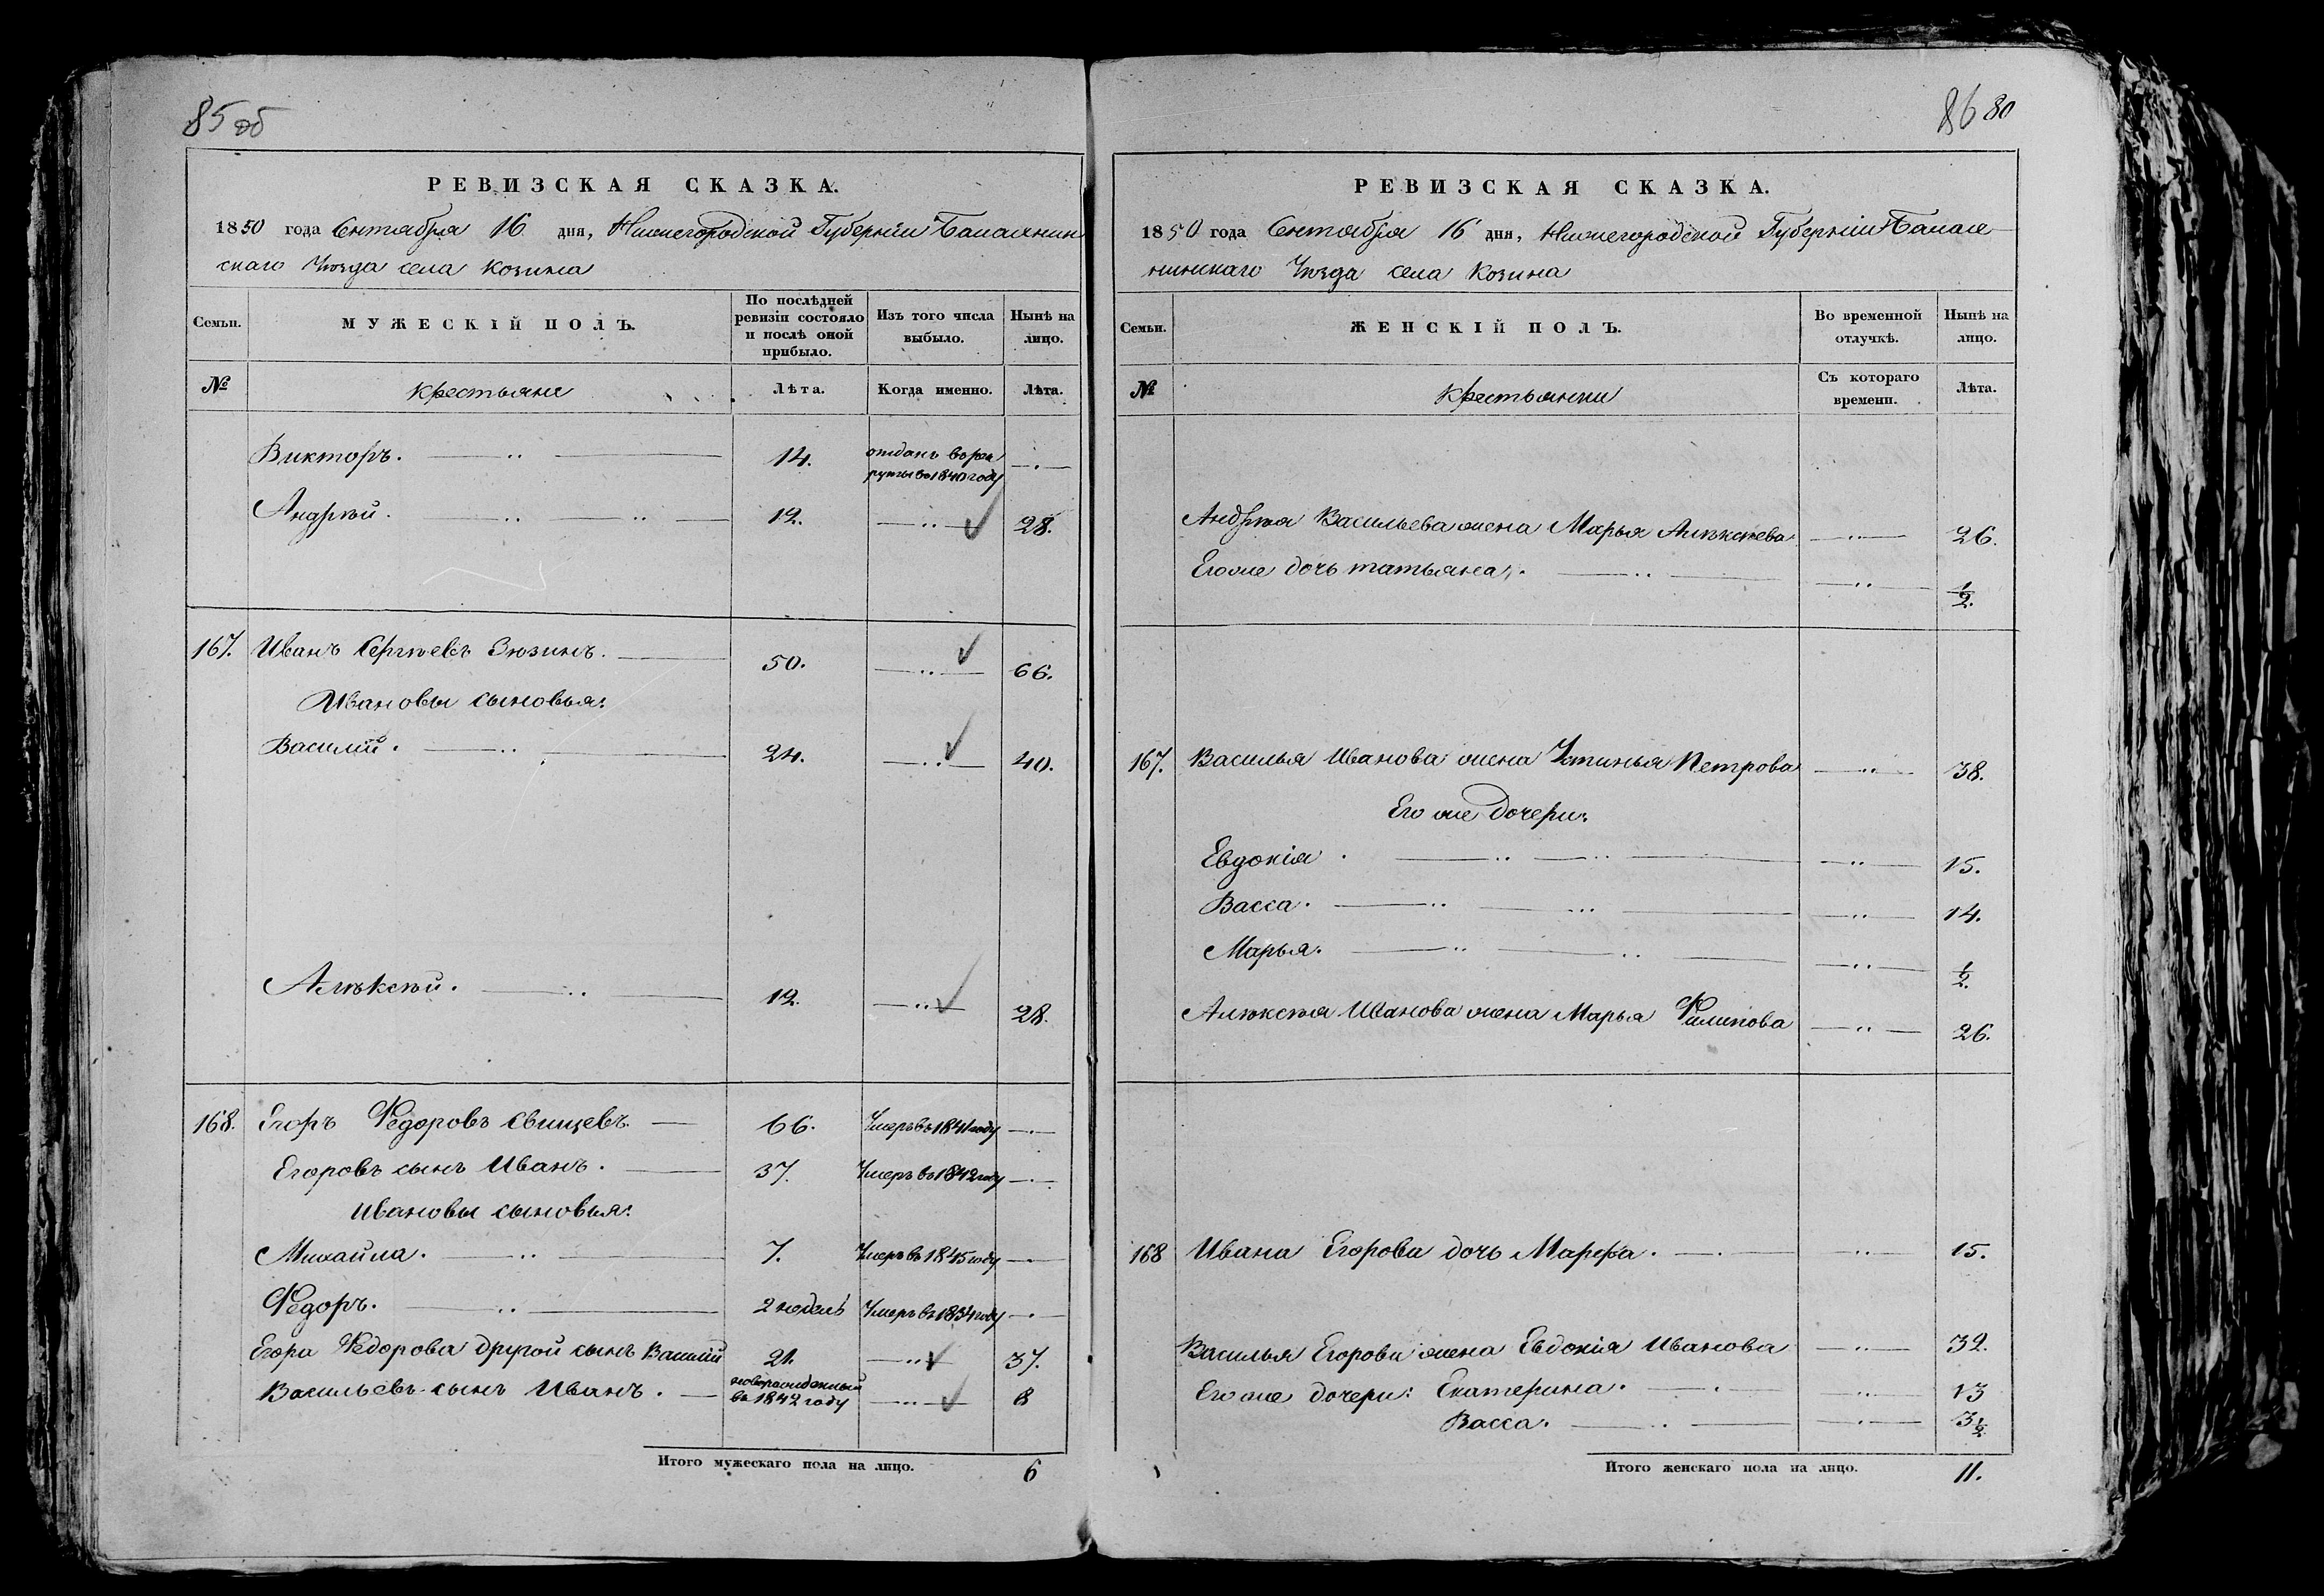 85 об
РЕВИЗСКАЯ СКАЗКА.
1850 года Сентября 16 дня, Нижегородской Губерніи Балахнин
скаго Уѣзда села Козина
Семьи.
МУЖЕСКІЙ ПОЛЪ.
По послѣдней ревизіи состояло и послѣ оной прибыло.
Изъ того числа выбыло.
Нынѣ на лицо.
№ Крестьяне Лѣта. Когда именно. Лѣта.
Викторъ. 14. отданъ въ рек
руты въ 1840 году
Андрѣй. 12. 28.
167. Иванъ Сергѣевъ Зюзинъ. 50. 66.
Ивановы сыновья:
Василій. 24. 40.
Алѣксѣй. 12. 28.
168. Егоръ Федоровъ Свищевъ. 66. Умеръ въ 1841 году
Егоровъ сынъ Иванъ. 37. Умеръ въ 1842 году
Ивановы сыновья:
Михайла. 7. Умеръ въ 1845 году
Федоръ. 2 недель Умеръ въ 1834 году
Егора Федорова другой сынъ Василій 21. 37.
Васильевъ сынъ Иванъ. новорожденный
въ 1842 году 8
Итого мужескаго пола на лицо. 6
86 80
РЕВИЗСКАЯ СКАЗКА.
1850 года Сентября 16 дня, Нижегородской Губерніи Балах
нинскаго Уѣзда села Козина
Семьи.
ЖЕНСКІЙ ПОЛЪ.
Во временной отлучкѣ.
Нынѣ на лицо.
№ Крестьянки Съ котораго времени. Лѣта.
Андрѣя Васильева жена Марья Алѣксѣева 26.
Его же дочь татьяна. 1/2.
167. Василья Иванова жена Устинья Петрова 38.
Его же дочери:
Евдокія. 15.
Васса. 14.
Марья. 1/2.
Алѣксѣя Иванова жена Марья Филипова 26.
168 Ивана Егорова дочь Марефа. 15.
Василья Егорова жена Евдокія Иванова 32.
Его же дочери: Екатерина. 13
Васса. 3 1/2
Итого женскаго пола на лицо. 11.